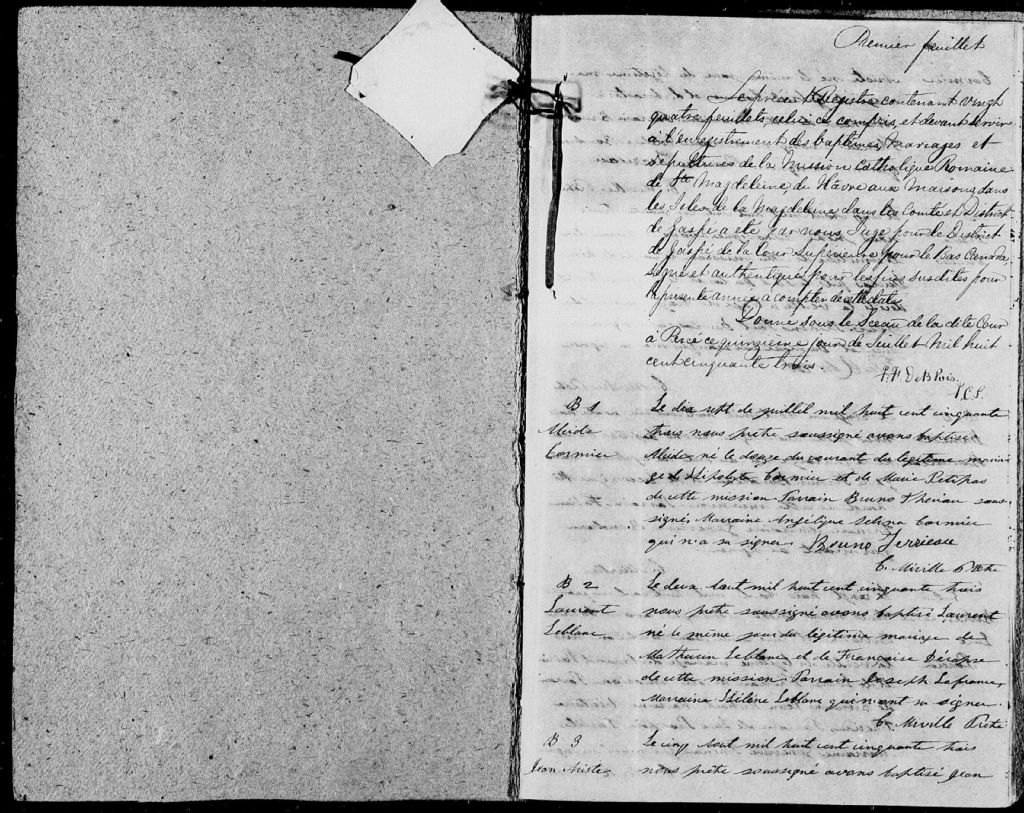 Premier feuillet
Le présent Régistre contenant vingt
quatre feuillets, celui ci compris, et devant servir
à l'enregistrement des baptêmes, Mariages et
sépultures de la Mission Catholique Romaine
de Ste Magdeleine, du Hâvre aux Maisons, dans
les Isles de la Magdeleine dans les Comté et District
de Gaspé, a été par nous Juge pour le District
de Gaspé de la Cour Supérieure pour le Bas Canada
signé et authentiqué pour les fins susdites pour
la présente année à compter de cette date.
Donné sous le Sceau de la dite Cour
à Percé ce quinzième jour de Juillet Mil huit
cent cinquante trois.
DeBlois
J.C.S.
B 1
Cormier
Le dix sept de juillet mil huit cent cinquante
trois nous prêtre soussigné avons baptisé
né le douze du courant du légitime maria
ge d'Hipolyte Cormier et de Marie Petitpas
de cette mission. Parrain Bruno Theriau sous-
signé, Marraine Angélique Selina Cormier
qui n'a su signer. Bruno Terrieau
C. Miville Ptre
B 2
Laurent
Leblanc
Le deux aout mil huit cent cinquante trois
nous prêtre soussigné avons baptisé Laurent
né le même jour du légitime mariage de
Mathurin Leblanc et de Françoise
de cette mission. Parrain Joseph Lafrance,
Marraine Hélène Leblanc qui n'ont su signer.
C. Miville Ptre
B 3
Jean
Le cinq aout mil huit cent cinquante trois
nous prêtre soussigné avons baptisé Jean